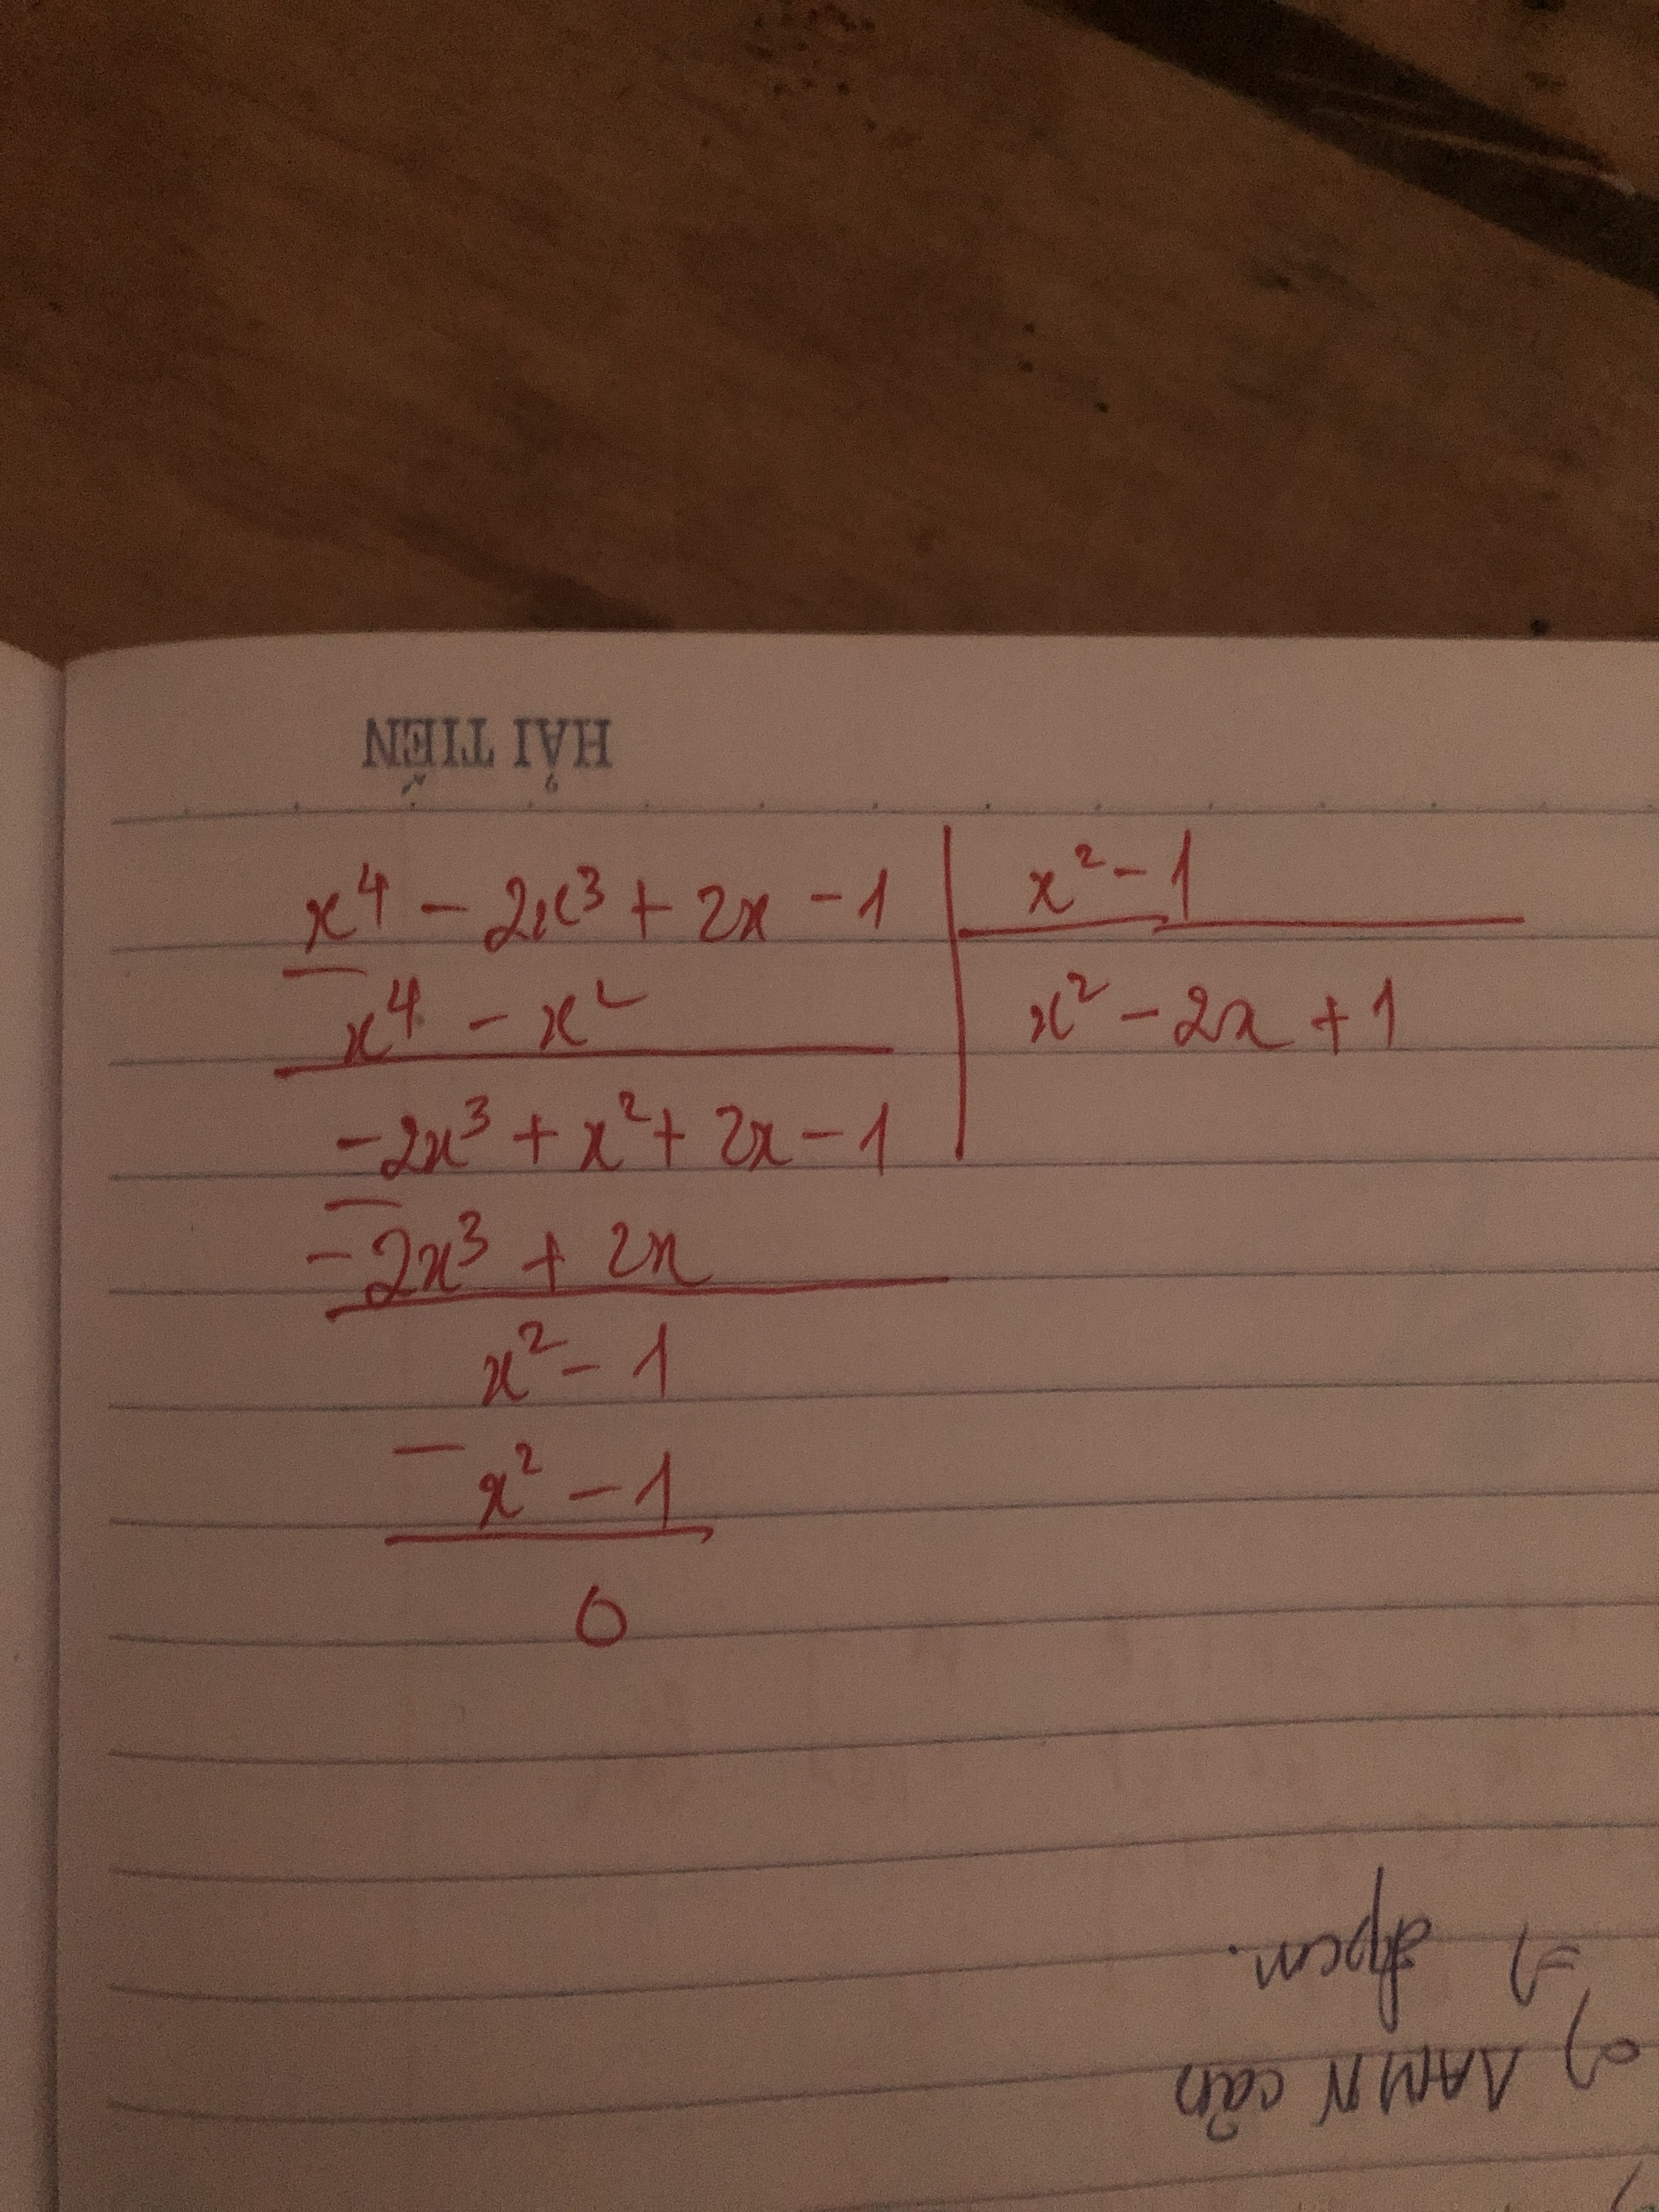 HẢI TIẾN
x⁴ - 2x³ + 2x - 1 | x² - 1
- x⁴ - x² | x² - 2x + 1
-2x³ + x² + 2x - 1
- -2x³ + 2x
x² - 1
- x² - 1
0
=) đpcm.
c) ΔAMN cân